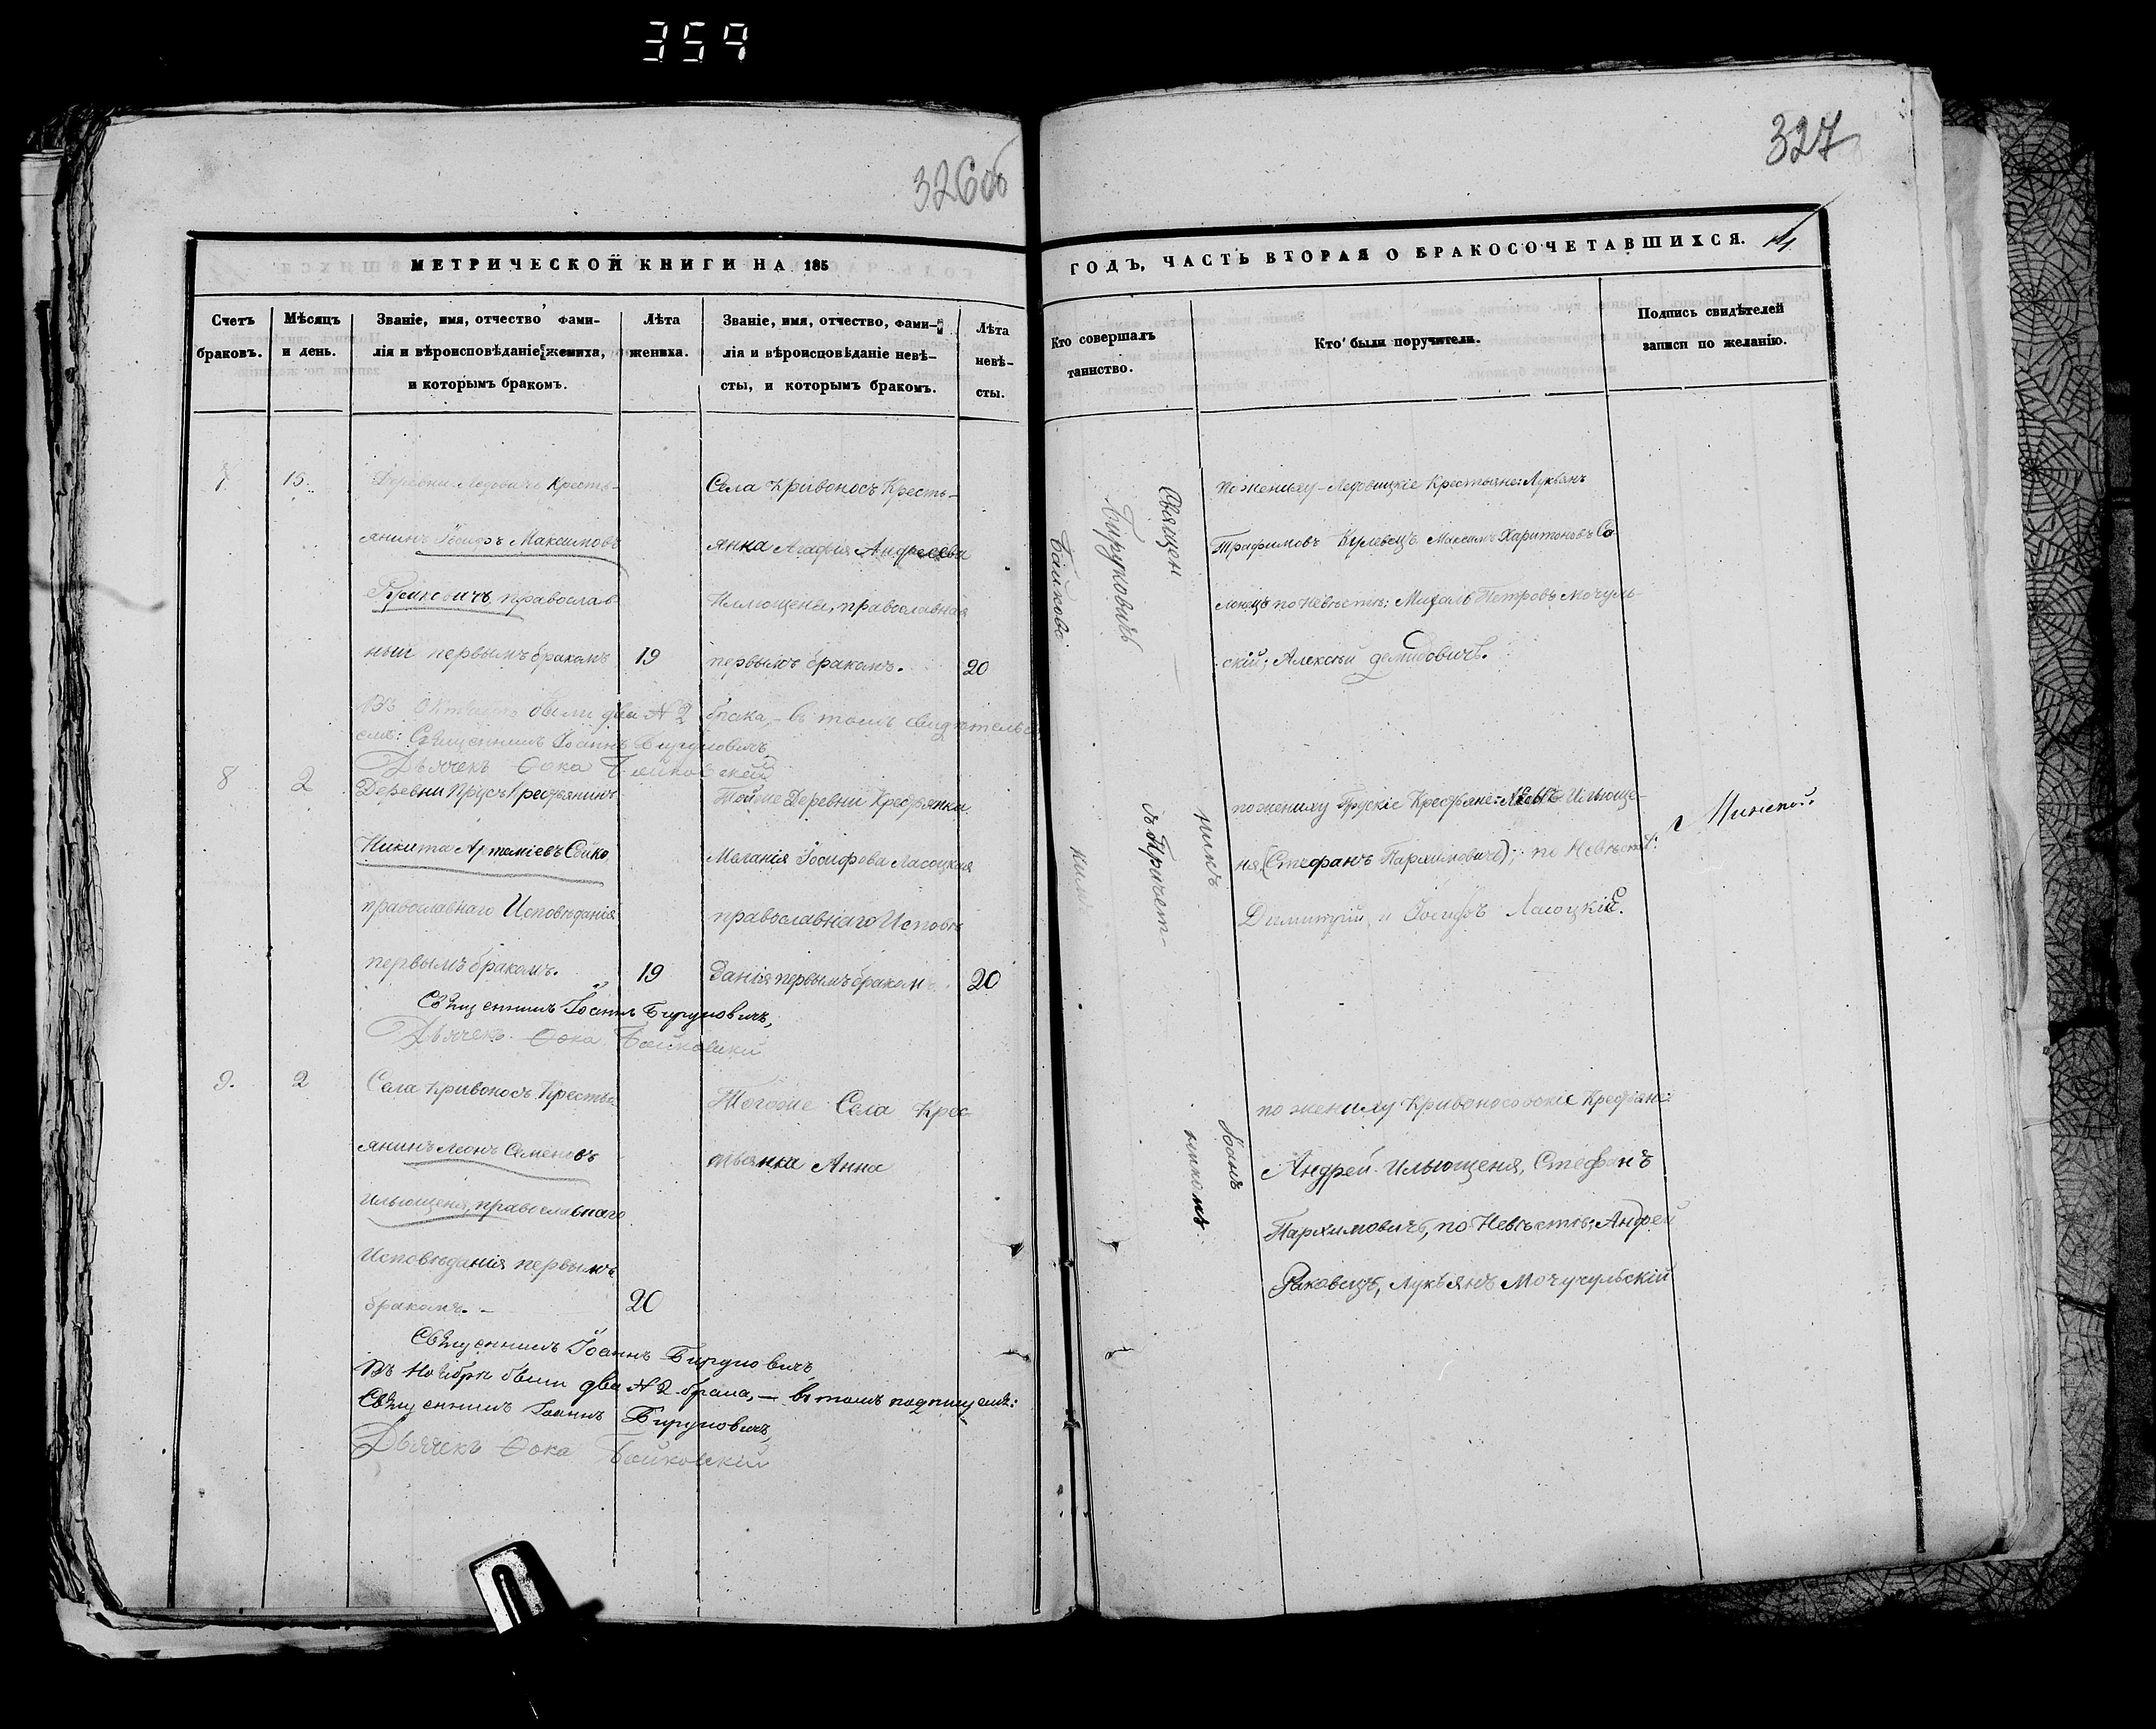 359
326об
327
МЕТРИЧЕСКОЙ КНИГИ НА 185
ГОДЪ, ЧАСТЬ ВТОРАЯ О БРАКОСОЧЕТАВШИХСЯ.
Счетъ браковъ.
Мѣсяцъ и день.
Званіе, имя, отчество фами-
лія и вѣроисповѣданіе жениха,
и которымъ бракомъ.
Лѣта жениха.
Званіе, имя, отчество, фами-
лія и вѣроисповѣданіе невѣ-
сты, и которымъ бракомъ.
Лѣта невѣ-
сты.
Кто совершалъ
таинство.
Кто были поручители.
Подпись свидѣтелей
записи по желанію.
7. 15.
Деревни Ледовичь Кресть-
янинъ Іосифъ Максимовъ
православ
ный первымъ бракомъ
19
Села Кривоносъ Кресть-
янка Агафія Андреева
Ильющеня, православная
первымъ бракомъ.
20
По жениху Крестьяне: Лукьянъ
Трофимовъ Максимъ Харитоновъ Са
по Невѣстѣ: Петровъ Мочуль-
скій; Алексѣй Демидовичъ.
Въ Октябрѣ были два № 2 брака, - въ томъ
Священникъ Іоаннъ Бируковичъ,
Дьячекъ Ѳока Байковскій
8 2
Деревни Прусъ Крестьянинъ
Никита Артеміевъ Сойко
православнаго Исповѣданія
первымъ бракомъ.
19
Тойже Деревни Крестьянка
Меланія Іосифова Ласоцкая
православнаго Исповѣ
данія первымъ бракомъ.
20
по жениху Прускіе Крестьяне: Ильюще-
ня, (Стефанъ Пархимовичъ); по Невѣстѣ:
Димитрій и Іосифъ Ласоцкіе.
Священникъ Іоаннъ Бируковичъ,
Дьячекъ Ѳока Байковскій
9. 2
Села Кривоносъ Кресть
янинъ Леонъ Семеновъ
Ильющеня, православнаго
Исповѣданія первымъ
бракомъ. -
20
Тогоже Села Крес-
тьянка Анна
по жениху Кривоносовскіе Крестьяне
Андрей Ильющеня, Стефанъ
Пархимовичъ, по Невѣстѣ: Андрей
Раковецъ, Лукьянъ Мочульскій
Священникъ Іоаннъ Бируковичъ,
Въ Ноябрѣ были два № 2 брака, - въ томъ подписуемъ:
Священникъ Іоаннъ Бируковичъ,
Дьячекъ Ѳока Байковскій
Священ
никъ
Іоанъ
Бируковичъ
съ Причет-
никомъ
Байковс
кимъ